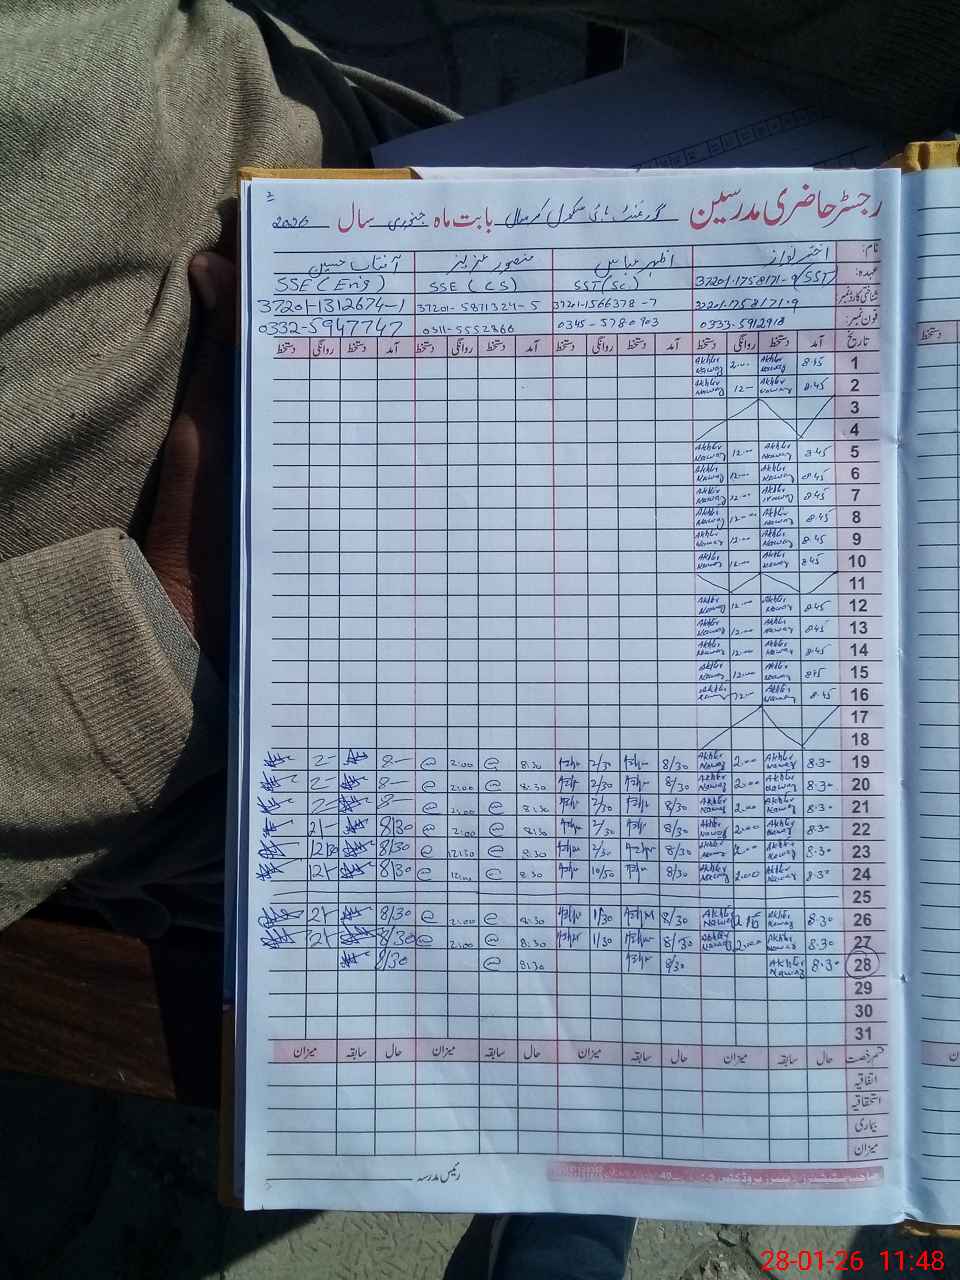 2
رجسٹر حاضری مدرسین گورنمنٹ ہائی سکول کرسال بابت ماہ جنوری سال 2026
نام: اختر نواز اظہر عباس منصور عزیز آفتاب حسین
عہدہ: 37201-1758171-9 (SST) SST (Sc.) SSE (CS) SSE (Eng)
شناختی کارڈ نمبر 37201-1758171-9 37201-1566378-7 37201-5871324-5 37201-1312674-1
فون نمبر: 0333-5912918 0345-5780903 0311-5552866 0332-5947747
تاریخ آمد دستخط روانگی دستخط آمد دستخط روانگی دستخط آمد دستخط روانگی دستخط آمد دستخط روانگی دستخط
1 8.45 Akhter Nawaz 2.00 Akhter Nawaz
2 8.45 Akhter Nawaz 12- Akhter Nawaz
3
4
5 8.45 Akhter Nawaz 12.00 Akhter Nawaz
6 8.45 Akhter Nawaz 12.00 Akhter Nawaz
7 8.45 Akhter Nawaz 12.00 Akhter Nawaz
8 8.45 Akhter Nawaz 12.00 Akhter Nawaz
9 8.45 Akhter Nawaz 12.00 Akhter Nawaz
10 8.45 Akhter Nawaz 12.00 Akhter Nawaz
11
12 8.45 Akhter Nawaz 12.00 Akhter Nawaz
13 8.45 Akhter Nawaz 12.00 Akhter Nawaz
14 8.45 Akhter Nawaz 12.00 Akhter Nawaz
15 8.45 Akhter Nawaz 12.00 Akhter Nawaz
16 8.45 Akhter Nawaz 12- Akhter
17
18
19 8.30 Akhter Nawaz 2.00 Akhter Nawaz 8/30 2/30 8:30 2:00 8- 2-
20 8.30 Akhter Nawaz 2.00 Akhter Nawaz 8/30 2/30 8:30 2:00 8- 2-
21 8.30 Akhter Nawaz 2.00 Akhter Nawaz 8/30 2/30 8:30 2:00 8- 2-
22 8.30 Akhter Nawaz 2.00 Akhter Nawaz 8/30 2/30 8:30 2:00 8/30 2/-
23 8.30 Akhter Nawaz 2.00 Akhter Nawaz 8/30 2/30 8:30 12:30 8/30 12/30
24 8.30 Akhter Nawaz 2.00 Akhter Nawaz 8/30 10/50 8:30 8/30 12/-
25
26 8.30 Akhter Nawaz 2.15 Akhter Nawaz 8/30 1/30 8:30 2:00 8/30 2/-
27 8.30 Akhter Nawaz 2.00 Akhter Nawaz 8/30 1/30 8:30 2:00 8/30 2/-
28 8.30 Akhter Nawaz 8/30 8:30 8/30
29
30
31
قسم رخصت حال سابقہ میزان حال سابقہ میزان حال سابقہ میزان حال سابقہ میزان
اتفاقیہ
استحقاقیہ
بیماری
میزان
رئیس مدرسہ
28-01-26 11:48